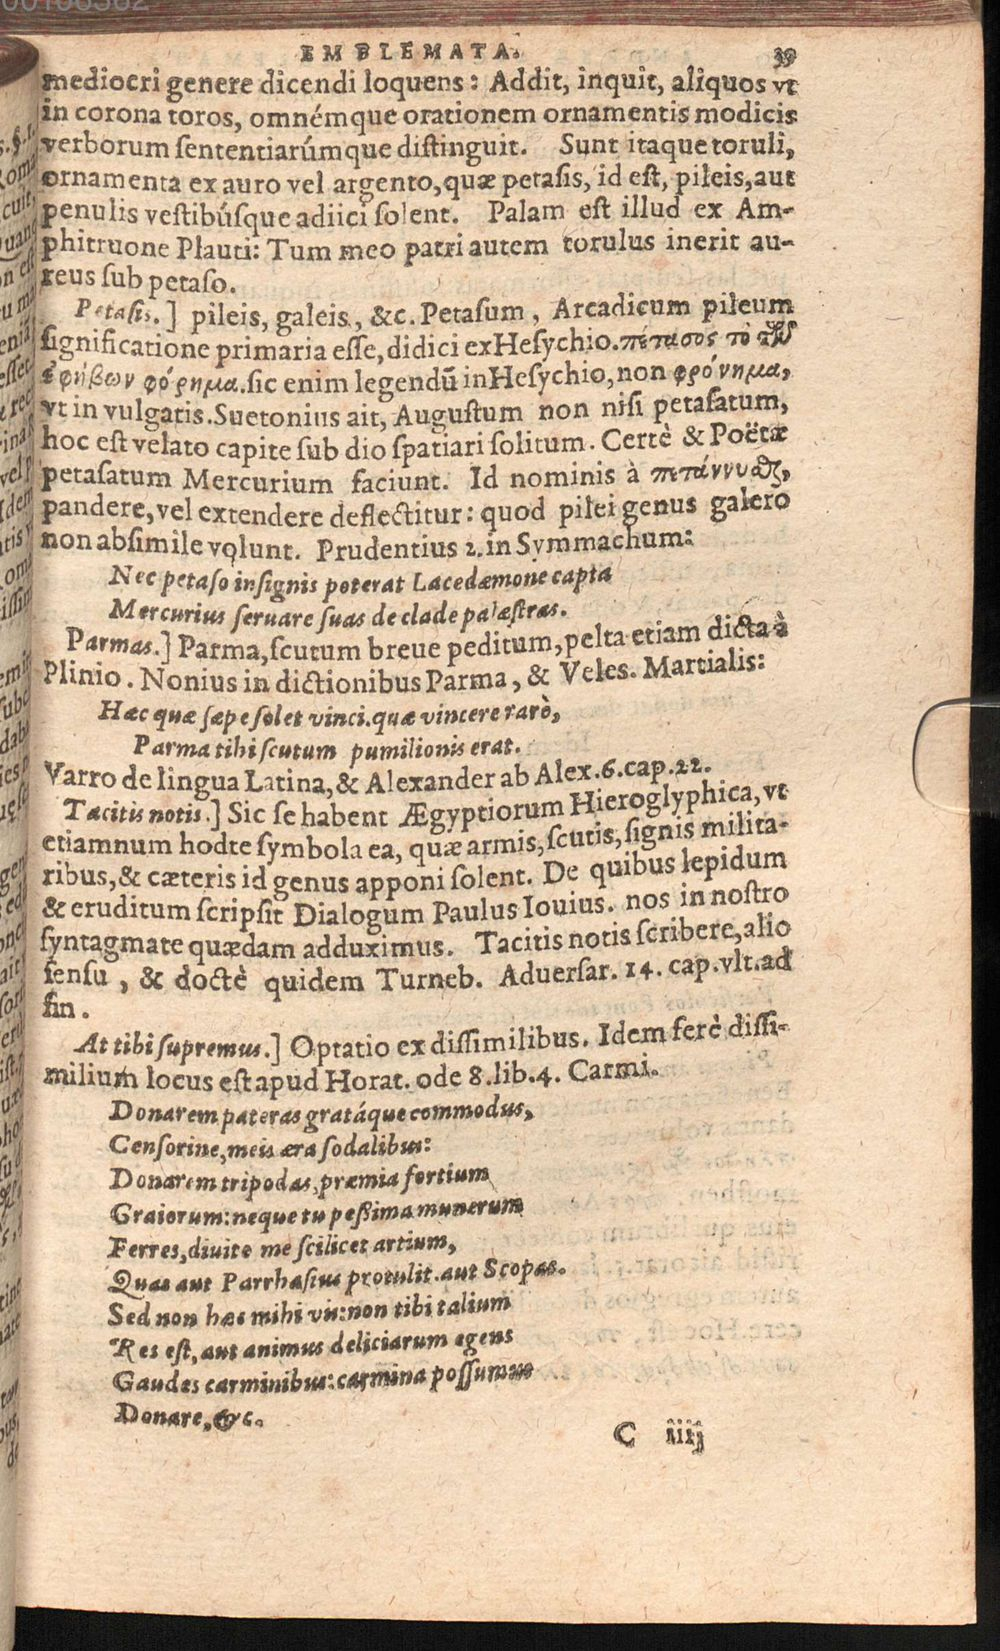 EMBLEMATA. 39
mediocri genere dicendi loquens: Addit, inquit, aliquos vt
in corona toros, omnémque orationem ornamentis modicis
verborum sententiarúmque distinguit. Sunt itaque toruli,
ornamenta ex auro vel argento, quæ petasis, id est, pileis, aut
penulis vestibúsque adiici solent. Palam est illud ex Am-
phitruone Plauti: Tum meo patri autem torulus inerit au-
reus sub petaso.
Petasis.] pileis, galeis, &c. Petasum, Arcadicum pileum
significatione primaria esse, didici ex Hesychio. πέτασος τὸ τῶν
ἐφήβων φόρημα. sic enim legendū in Hesychio, non φρόνημα,
vt in vulgatis. Suetonius ait, Augustum non nisi petasatum,
hoc est velato capite sub dio spatiari solitum. Certè & Poëtæ
petasatum Mercurium faciunt. Id nominis à πετάννυσθαι,
pandere, vel extendere deflectitur: quod pilei genus galero
non absimile volunt. Prudentius 2. in Symmachum:
Nec petaso insignis poterat Lacedæmone capta
Mercurius seruare suas de clade palæstras.
Parmas.] Parma, scutum breue peditum, pelta etiam dicta à
Plinio. Nonius in dictionibus Parma, & Veles. Martialis:
Hæc quæ sæpe solet vinci. quæ vincere rarò,
Parma tibi scutum pumilionis erat.
Varro de lingua Latina, & Alexander ab Alex. 6. cap. 22.
Tacitis notis.] Sic se habent Ægyptiorum Hieroglyphica, vt
etiamnum hodte symbola ea, quæ armis, scutis, signis milita-
ribus, & cæteris id genus apponi solent. De quibus lepidum
& eruditum scripsit Dialogum Paulus Iouius. nos in nostro
syntagmate quædam adduximus. Tacitis notis scribere, alio
sensu, & doctè quidem Turneb. Aduersar. 14. cap. vlt. ad
fin.
At tibi supremus.] Optatio ex dissimilibus. Idem ferè dissi-
milium locus est apud Horat. ode 8. lib. 4. Carmi.
Donarem pateras gratáque commodus,
Censorine, meis æra sodalibus:
Donarem tripodas, præmia fortium
Graiorum: neque tu pessima munerum
Ferres, diuite me scilicet artium,
Quas aut Parrhasius protulit. aut Scopas.
Sed non hæc mihi vis: non tibi talium
Res est, aut animus deliciarum egens
Gaudes carminibus: carmina possumus
Donare, &c.
C iiij